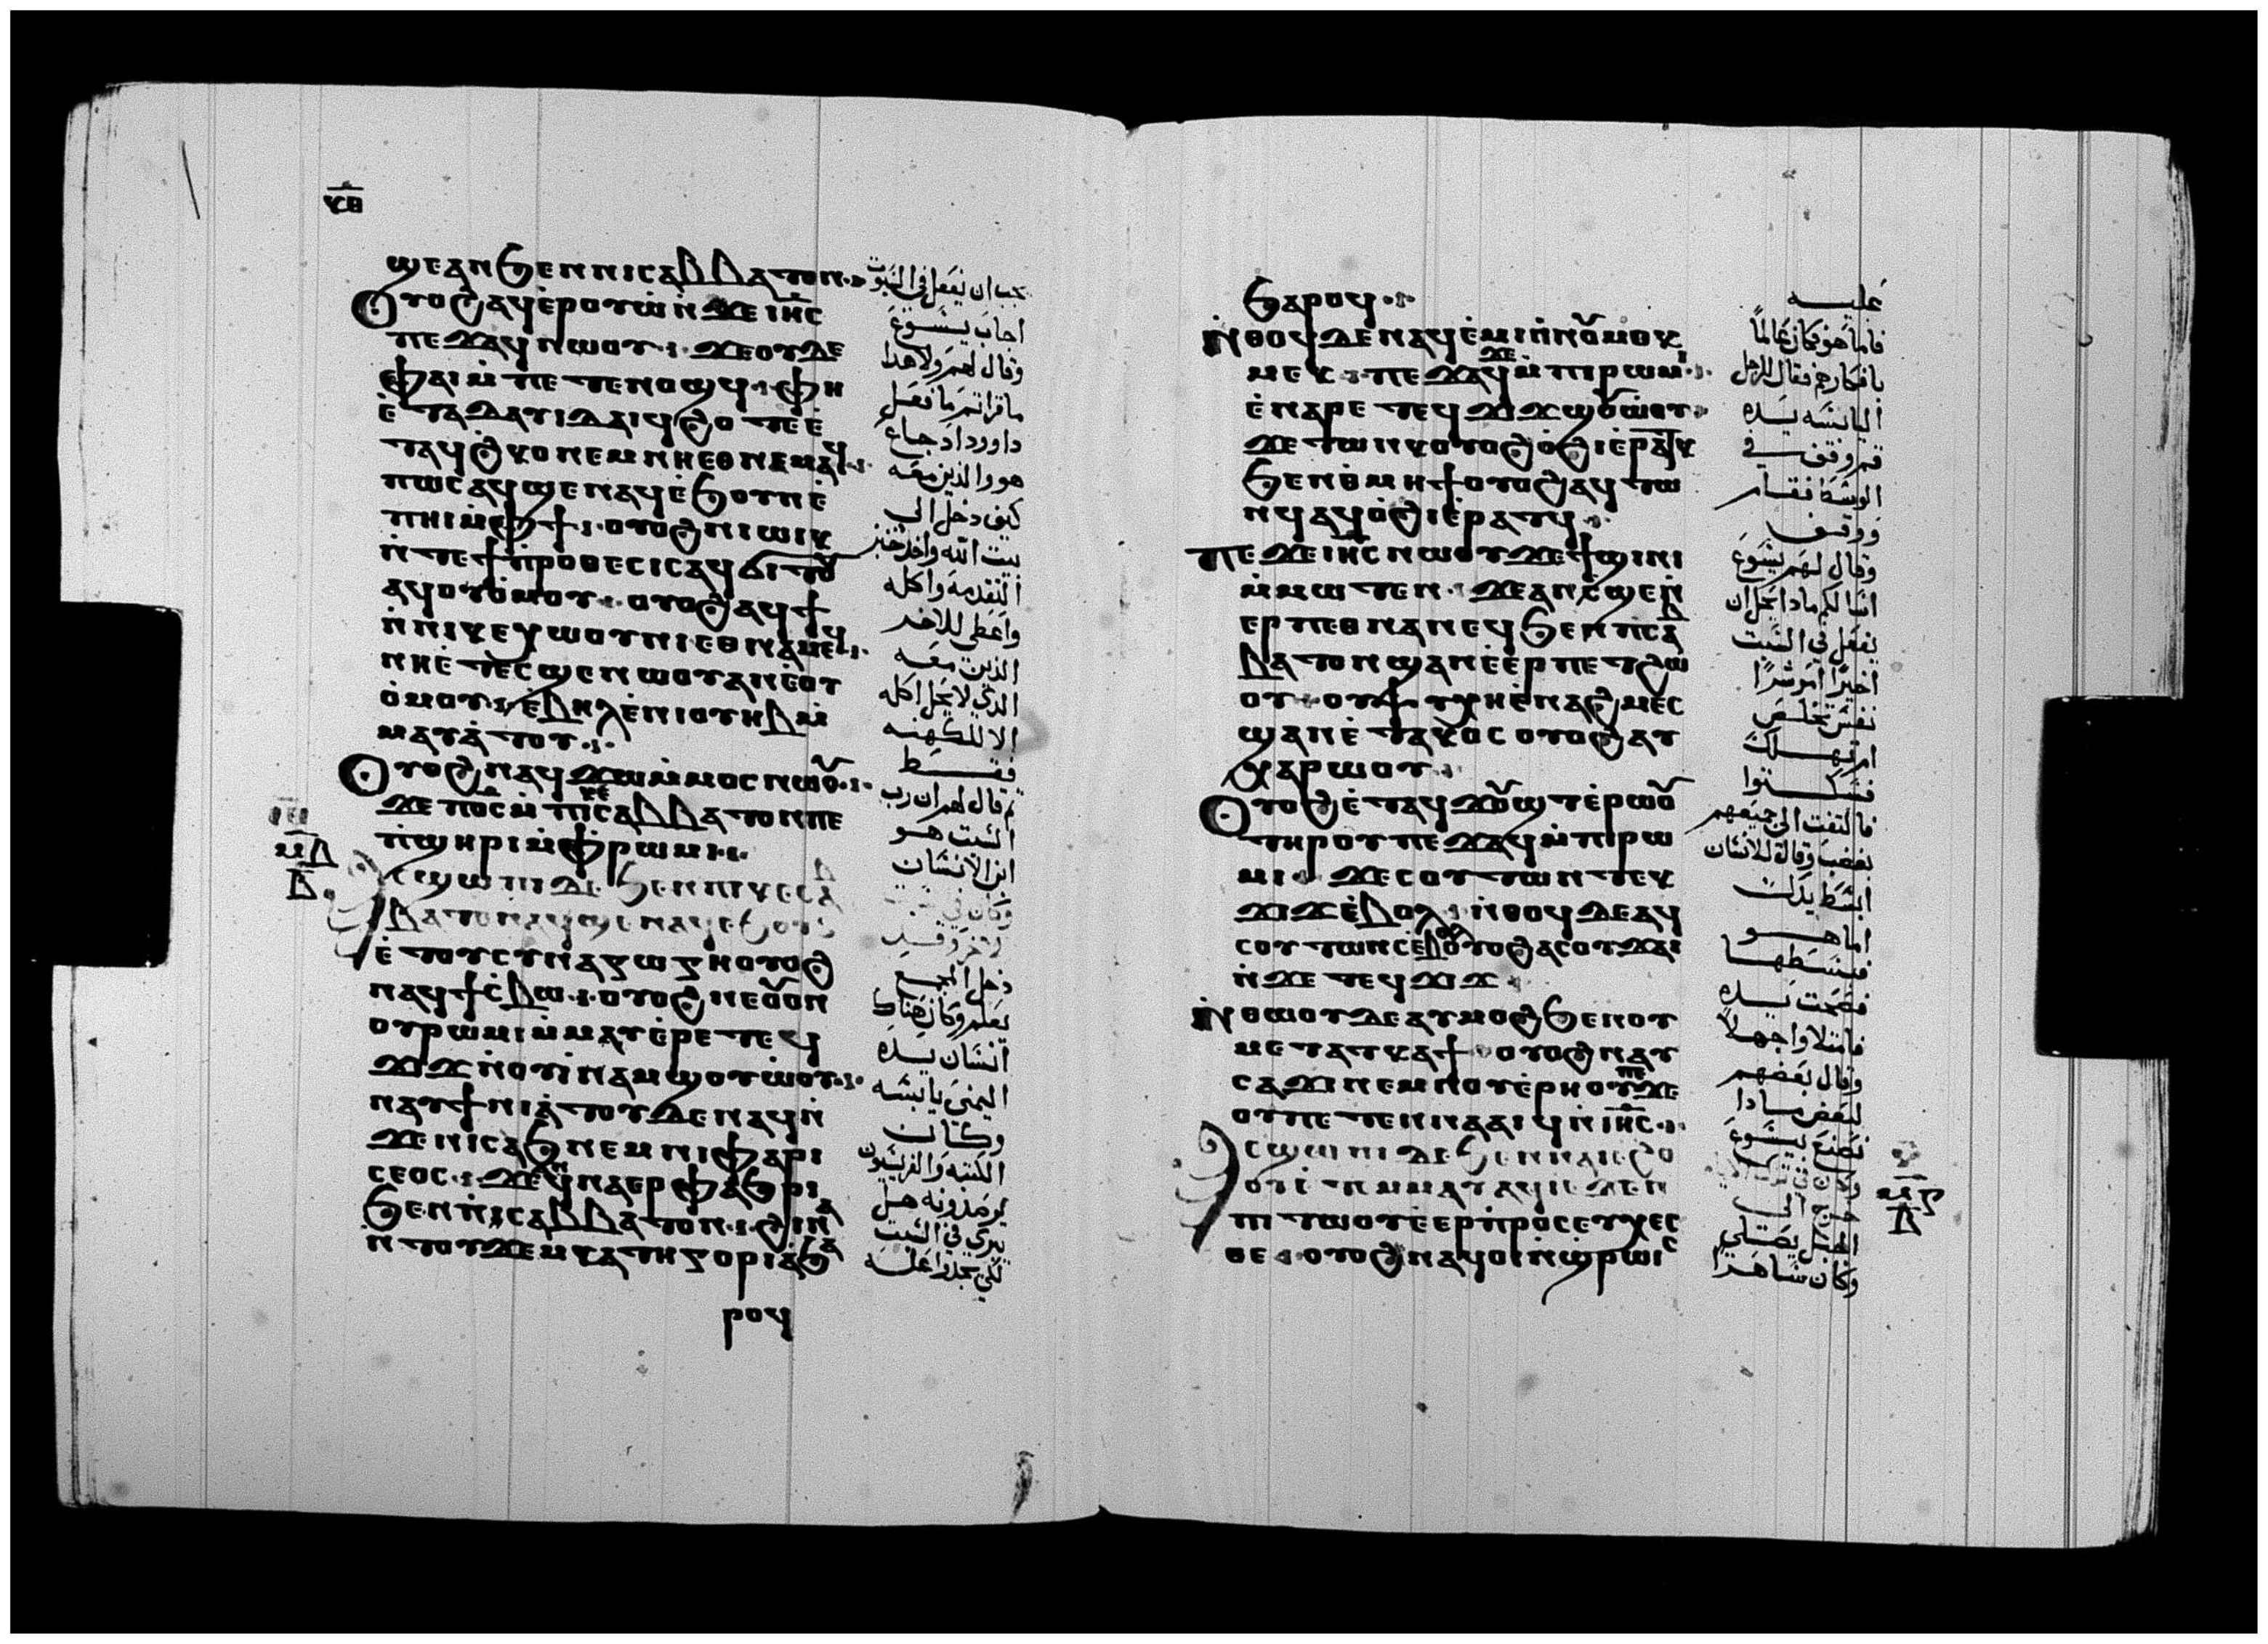 ⲕⲑ
ϣⲉⲁⲛϧⲉⲛⲛⲓⲥⲁⲃⲃⲁⲧⲟⲛ
ⲟⲩⲟϩⲁϥⲉ̀ⲣⲟⲩⲱ̀ⲛ̀ϫⲉⲓⲏ̅ⲥ
ⲡⲉϫⲁϥⲛⲱⲟⲩ ϫⲉⲟⲩⲇⲉ
ⲫⲁⲓⲙ̀ⲡⲉⲧⲉⲛⲟϣϥ ⲫⲏ
ⲉ̀ⲧⲁⲇⲁⲩⲓⲇⲁⲓϥϩⲟⲧⲉⲉ̀
ⲧⲁϥϩⲕⲟⲛⲉⲙⲛⲏⲉⲑⲛⲉⲙⲁϥ
ⲡⲱⲥⲁϥϣⲉⲛⲁϥⲉ̀ϧⲟⲩⲛⲉ̀
ⲡⲏⲓⲙ̀ⲫϯ ⲟⲩⲟϩⲛⲓⲱⲓⲕ
ⲛ̀ⲧⲉϯⲡ̀ⲣⲟⲑⲉⲥⲓⲥⲁϥϭⲓⲧⲟⲩ
ⲁϥⲟⲩⲟ̀ⲙⲟⲩ ⲟⲩⲟϩⲁϥϯ
ⲛ̀ⲛⲓⲕⲉⲭⲱⲟⲩⲛⲓⲉⲑⲛⲉⲙⲁϥ
ⲛⲏⲉ̀ⲧⲉⲥϣⲉⲛⲱⲟⲩⲁⲛⲉ̀ⲟⲩ
ⲟ̀ⲙⲟⲩ ⲉ̀ⲃⲏⲗⲉ̀ⲛⲓⲟⲩⲏⲃⲙ̀
ⲙⲁⲩⲁ̀ⲧⲟⲩ
ⲟⲩⲟϩⲛⲁϥϫⲱⲙ̀ⲙⲟⲥⲛⲱⲟⲩ
ϫⲉⲡⲟ̅ⲥ̅ⲙ̀ⲡⲓⲕⲉⲥⲁⲃⲃⲁⲧⲟⲛⲡⲉ
ⲡ̀ϣⲏⲣⲓⲙ̀ⲫ̀ⲣⲱⲙⲓ
ⲁⲥϣⲱⲡⲓⲇⲉϧⲉⲛⲡⲓⲕⲉⲥⲁ
ⲃⲃⲁⲧⲟⲛⲁϥϣⲉⲛⲁϥⲉ̀ϧⲟⲩⲛ
ⲉ̀ⲧⲟⲩⲥⲩⲛⲁⲅⲱⲅⲏⲟⲩⲟϩ
ⲛⲁϥϯⲥ̀ⲃⲱ ⲟⲩⲟϩⲛⲉⲟⲩⲟⲛ
ⲟⲩⲣⲱⲙⲓⲙ̀ⲙⲁⲩⲉ̀ⲣⲉⲧⲉϥ
ϫⲓϫⲛ̀ⲟⲩⲓ̀ⲛⲁⲙϣⲟⲩⲱ̀ⲟⲩ
ⲛⲁⲩϯⲛⲓⲁ̀ⲧⲟⲩⲇⲉⲛⲁϥⲛ̀
ϫⲉⲛⲓⲥⲁϧⲛⲉⲙⲛⲓⲫⲁⲣⲓ
ⲥⲉⲟⲥ ϫⲉϥⲛⲁⲉⲣⲫⲁϧⲣⲓ
ϧⲉⲛⲛⲓⲥⲁⲃⲃⲁⲧⲟⲛ ϩⲓⲛⲁ
ⲛ̀ⲧⲟⲩϫⲉⲙⲕⲁⲧⲏⲅⲟⲣⲓⲁ̀ϧⲁ
ⲣⲟϥ
يجب ان يفعل في السبوت
اجاب يسوع
وقال لهم ولا هدا
ما قراتم ما فعل
داوود اد جاع
هو والذين معه
كيف دخل الى
بيت الله واخذ خبز
التقدمه واكله
واعطى للاخر
الذين معه
الذي لا يحل اكله
الا للكهنه
فقط
ثم قال لهم ان رب
السبت هو
ابن الانسان
دخل المجمع
يعلم وكان هناك
انسان يده
اليمنى يابسه
وكان
الكتبه والفريسيون
يرصدونه هل
يبري في السبت
لكي يجدوا عله
ⲙⲃ
ⲃ
ϧⲁⲣⲟϥ
ⲛ̀ⲑⲟϥⲇⲉⲛⲁϥⲉ̀ⲙⲓⲛ̀ⲛⲟⲩⲙⲟⲕ
ⲙⲉⲕ ⲡⲉϫⲁϥⲇⲉⲙ̀ⲡⲓⲣⲱⲙⲓ
ⲉ̀ⲛⲁⲣⲉⲧⲉϥϫⲓϫϣⲟⲩⲱ̀ⲟⲩ
ϫⲉⲧⲱⲛⲕⲟⲩⲟϩⲟ̀ϩⲓⲉ̀ⲣⲁⲧⲕ
ϧⲉⲛⲑ̀ⲙⲏϯⲟⲩⲟϩⲁϥⲧⲱ
ⲛϥⲁϥⲟ̀ϩⲓⲉ̀ⲣⲁⲧϥ
ⲡⲉϫⲉⲓⲏ̅ⲥⲛⲱⲟⲩϫⲉϯϣⲓⲛⲓ
ⲙ̀ⲙⲱⲧⲉⲛ ϫⲉⲁⲛⲥ̀ϣⲉⲛ̀
ⲉⲣⲡⲉⲑⲛⲁⲛⲉϥϧⲉⲛⲡⲥⲁⲃ
ⲃⲁⲧⲟⲛϣⲁⲛⲉ̀ⲉⲣⲡⲉⲧϩⲱ
ⲟⲩ ⲟⲩⲯⲩⲭⲏⲉ̀ⲛⲁϩⲙⲉⲥ
ϣⲁⲛⲉ̀ⲧⲁⲕⲟⲥⲟⲩⲟϩⲁⲩ
ⲭⲁⲣⲱⲟⲩ
ⲟⲩⲟϩⲉ̀ⲧⲁϥϫⲟⲩϣⲧⲉ̀ⲣⲱⲟⲩ
ⲧⲏⲣⲟⲩⲡⲉϫⲁϥⲙ̀ⲡⲓⲣⲱ
ⲙⲓ ϫⲉⲥⲟⲩⲧⲱⲛⲧⲉⲕ
ϫⲓϫⲉ̀ⲃⲟⲗ ⲛ̀ⲑⲟϥⲇⲉⲁϥ
ⲥⲟⲩⲧⲱⲛⲥⲉ̀ⲃⲟⲗⲟⲩⲟϩⲁⲥⲟⲩϫⲁⲓ
ⲛ̀ϫⲉⲧⲉϥϫⲓϫ
ⲛ̀ⲑⲱⲟⲩⲇⲉⲁⲩⲙⲟϩϧⲉⲛⲟⲩ
ⲙⲉⲧⲁⲧⲕⲁϯ ⲟⲩⲟϩⲛⲁⲩ
ⲥⲁϫⲓⲛⲉⲙⲛⲟⲩⲉ̀ⲣⲏⲟⲩⲡⲉϫⲉ
ⲟⲩⲡⲉⲧⲉⲛⲛⲁⲁⲓϥⲛ̀ⲓⲏ̅ⲥ
ⲁⲥϣⲱⲡⲓⲇⲉϧⲉⲛⲛⲁⲓⲉ̀ϩⲟ
ⲟⲩⲉ̀ⲧⲉⲙ̀ⲙⲁⲩⲁϥⲓ̀ⲉ̀ϫⲉⲛ
ⲡⲓⲧⲱⲟⲩⲉ̀ⲉⲣⲡ̀ⲣⲟⲥⲉⲩⲭⲉⲥ
ⲑⲉ ⲟⲩⲟϩⲛⲁϥⲟⲓⲛ̀ϣ̀ⲣⲱⲓⲥ
عليه
فاما هو فكان عالما
بافكارهم فقال للرجل
اليابسه يده
قم وقف في
الوسط فقام
ووقف
وقال لهم يسوع
اسالكم مادا يحل ان
يفعل في السبت
اخيرا ام شرا
نفس تخلص
ام تهلك
فسكتوا
فالتفت الى جميعهم
بغضب وقال للانسان
ابسط يدك
اما هو
فبسطها
فصحت يده
فامتلاوا جهلا
وقال بعضهم
لبعض مادا
نصنع بيسوع
خرج الى
الجبل يصلي
وكان ساهرا
ⲙⲅ
ⲃ